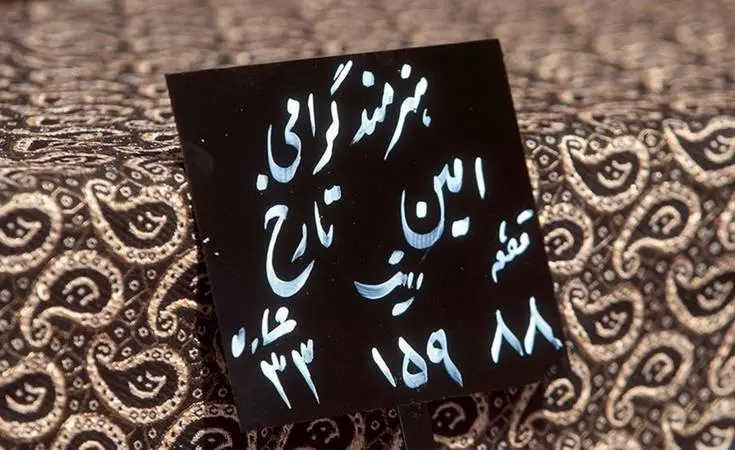 هنرمند گرامی
امین تارخ
قطعه ردیف شماره
۸۸ ۱۵۹ ۳۳